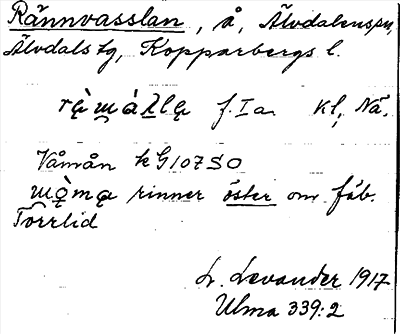 Rännvasslan, å, Älvdalens sn,
Älvdals tg, Kopparbergs l.
f. I a. kl, Nä.
Våmån k G 107 SO
rinner öster om fäb.
Torrlid
L. Levander 1917
Ulma 339:2